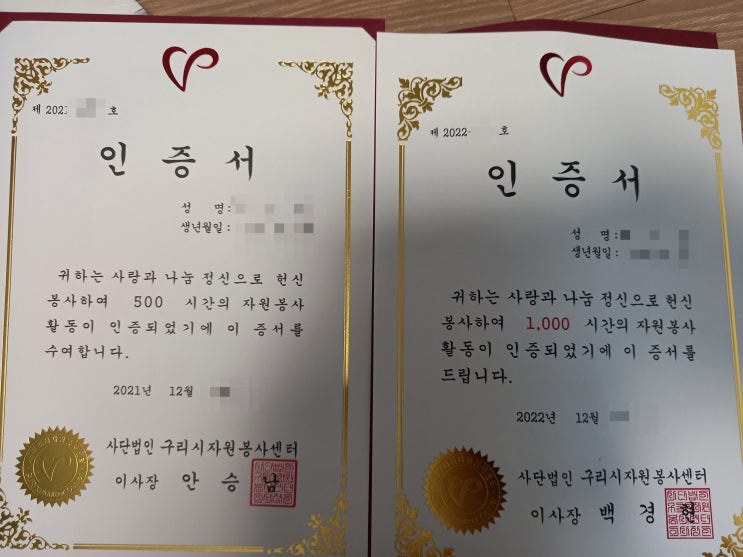 제 2021 호
인 증 서
성 명 :
생년월일 :
귀하는 사랑과 나눔 정신으로 헌신
봉사하여 500 시간의 자원봉사
활동이 인증되었기에 이 증서를
수여합니다.
2021년 12월
사단법인 구리시자원봉사센터
이사장 안 승 남
제 2022- 호
인 증 서
성 명 :
생년월일 :
귀하는 사랑과 나눔 정신으로 헌신
봉사하여 1,000 시간의 자원봉사
활동이 인증되었기에 이 증서를
드립니다.
2022년 12월
사단법인 구리시자원봉사센터
이사장 백 경 현